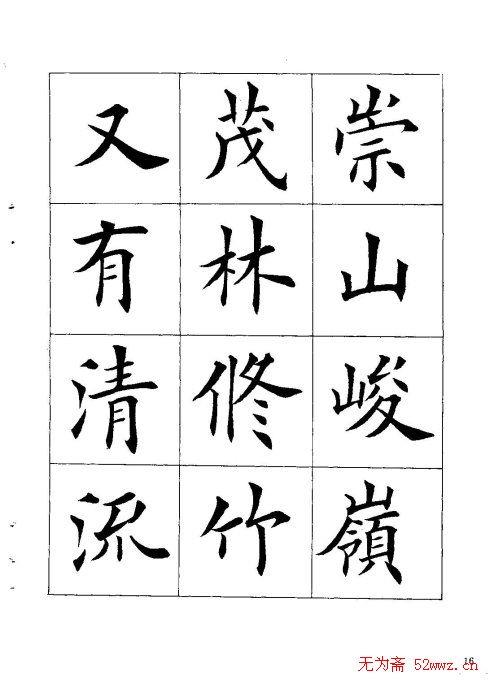 崇山峻嶺
茂林修竹
又有清流
16
无为斋 52wwz.cn